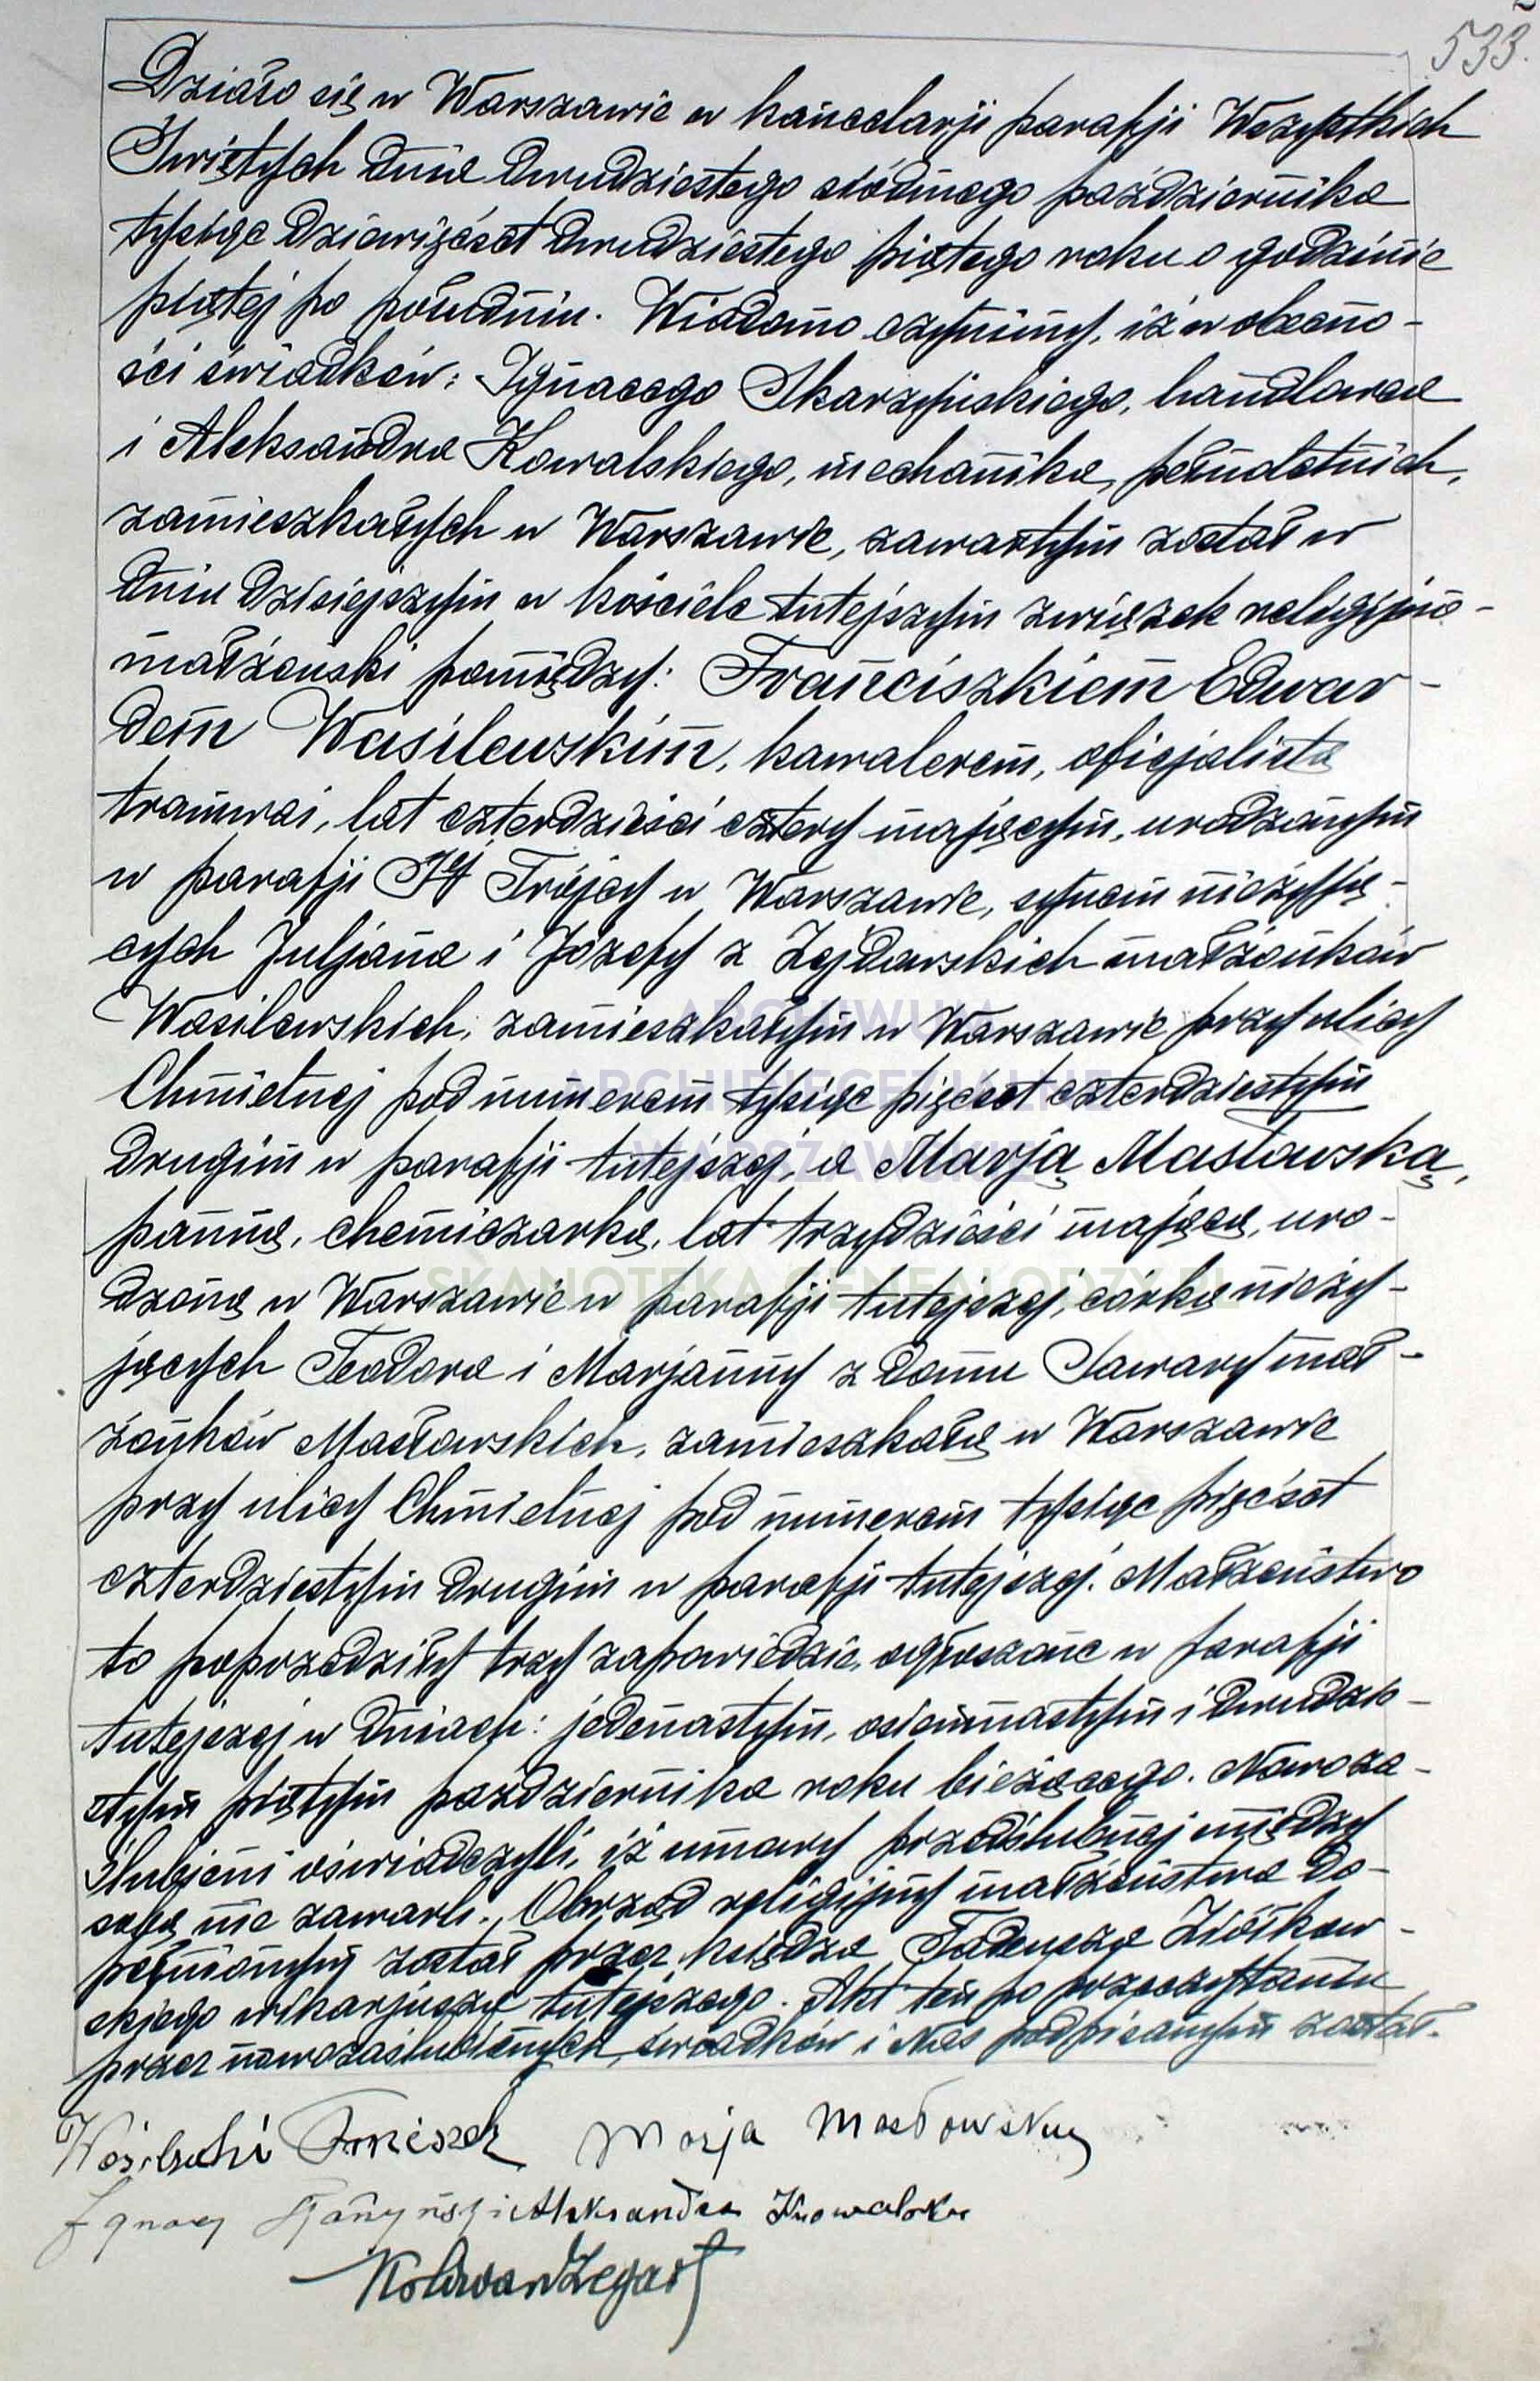 533.
Działo się w Warszawie w kancelarji parafji Wszystkich
Świętych dnia dwudziestego siódmego października
tysiąc dziewięćset dwudziestego piątego roku o godzinie
piątej po południu. Wiadomo czynimy, iż w obecno-
ści świadków: Ignacego Skarzyńskiego, handlowca
i Aleksandra Kowalskiego, mechanika, pełnoletnich,
zamieszkałych w Warszawie, zawartym został w
dniu dzisiejszym w kościele tutejszym związek religijno-
małżeński pomiędzy: Franciszkiem Edwar-
dem Wasilewskim, kawalerem, oficjalistą
tramwai, lat czterdzieści cztery mającym, urodzonym
w parafji Ś-ej Trójcy w Warszawie, synem nieżyją-
cych Juljana i Józefy z Zejdowskich małżonków
Wasilewskich, zamieszkałym w Warszawie przy ulicy
Chmielnej pod numerem tysiąc pięćset czterdziestym
drugim w parafji tutejszej, a Marją Masłowską,
panną, chemiczarką, lat trzydzieści mającą, uro-
dzoną w Warszawie w parafji tutejszej, córką nieży-
jących Teodora i Marjanny z domu Sawary mał-
żonków Masłowskich, zamieszkałą w Warszawie
przy ulicy Chmielnej pod numerem tysiąc pięćset
czterdziestym drugim w parafji tutejszej. Małżeństwo
to poprzedziły trzy zapowiedzie, ogłoszone w parafji
tutejszej w dniach: jedenastym, osiemnastym i dwudzie-
stym piątym października roku bieżącego. Nowoza-
ślubieni oświadczyli, iż umowy przedślubnej między
sobą nie zawarli. Obrząd religijny małżeństwa do-
pełnionym został przez księdza Tadeusza Ziółkow-
skiego wikarjusza tutejszego. Akt ten po przeczytaniu
przez nowozaślubionych, świadków i Nas podpisanym został.
Wasilewski Franciszek Marja Masłowska
Ignacy Aleksander Kowalski